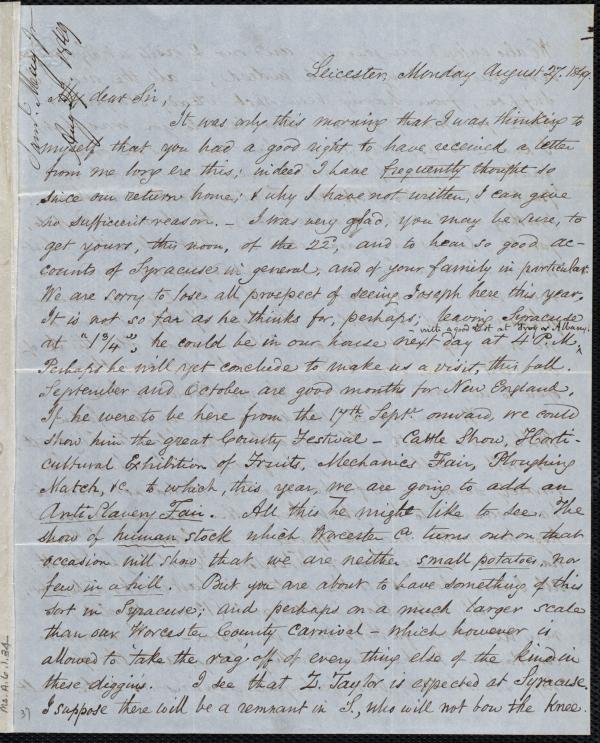 Saml. May Jr.
Aug 1849
Leicester, Monday August 27. 1849.
My dear Sir,
It was only this morning that I was thinking to
myself that you had a good right to have received a letter
from me long ere this; indeed I have frequently thought so
since our return home; & why I have not written, I can give
no sufficient reason. – I was very glad, you may be sure, to
get yours, this noon, of the 22d, and to hear so good ac-
counts of Syracuse in general, and of your family in particular.
We are sorry to lose all prospect of seeing Joseph here this year.
It is not so far as he thinks for, perhaps; leaving Syracuse
– with a good Rest at Troy or Albany.
at "1 3/4", he could be in our house next day at 4 P.M.
Perhaps he will yet conclude to make us a visit, this fall.
September and October are good months for New England.
If he were to be here from the 17th Sept. onward, we could
show him the great County Festival – Cattle Show, Horti-
cultural Exhibition of Fruits, Mechanics Fair, Ploughing
Match, &c. to which, this year, we are going to add an
Anti Slavery Fair. All this he might like to see. The
show of human stock which Worcester Co. turns out on that
occasion will show that we are neither small potatoes, nor
few in a hill. But you are about to have something of this
sort in Syracuse; and perhaps on a much larger scale
than our Worcester County carnival – which however is
allowed to take the rag off of every thing else of the kind in
these diggins. I see that Z. Taylor is expected at Syracuse.
I suppose there will be a remnant in S., who will not bow the knee
37